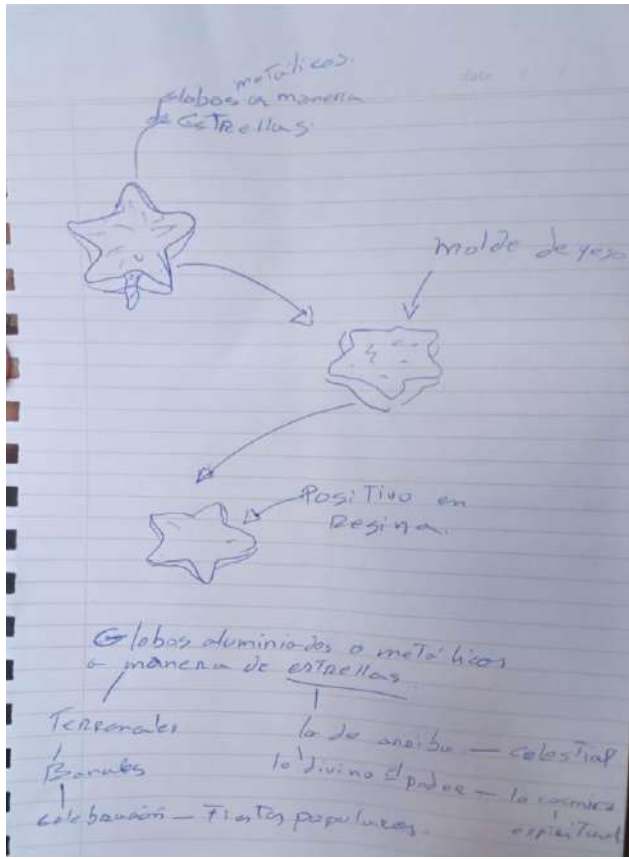 date
metálicos.
globos a manera
de estrellas.
molde de yeso
Positivo en
Resina.
Globos aluminiados o metálicos
a manera de estrellas
Terrenales
Banales
celebración — Fiestas populares.
lo de arriba — celestial
lo divino el poder — lo cósmico
espiritual